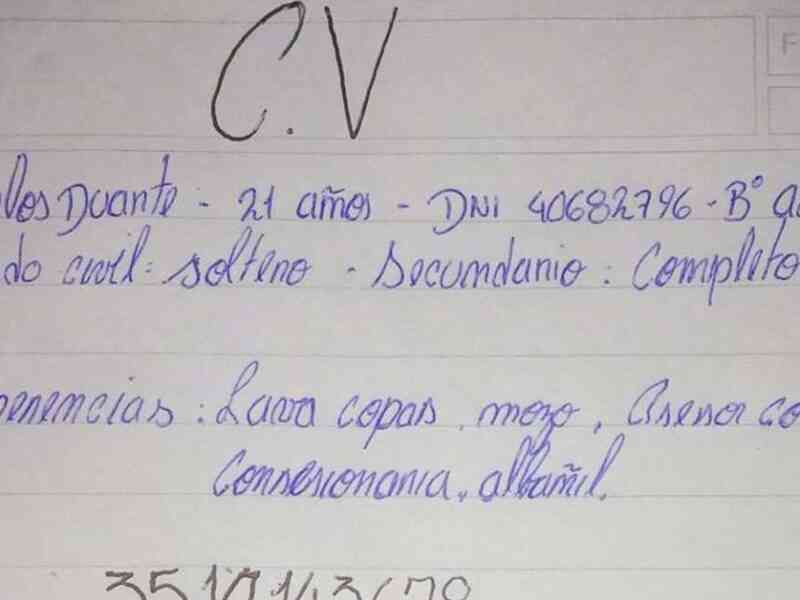 C.V
Duarte - 21 años - DNI 40682796 - B°
civil: soltero - Secundario: Completo
Lava copas, mozo, Asesor
Consesionaria, albañil.